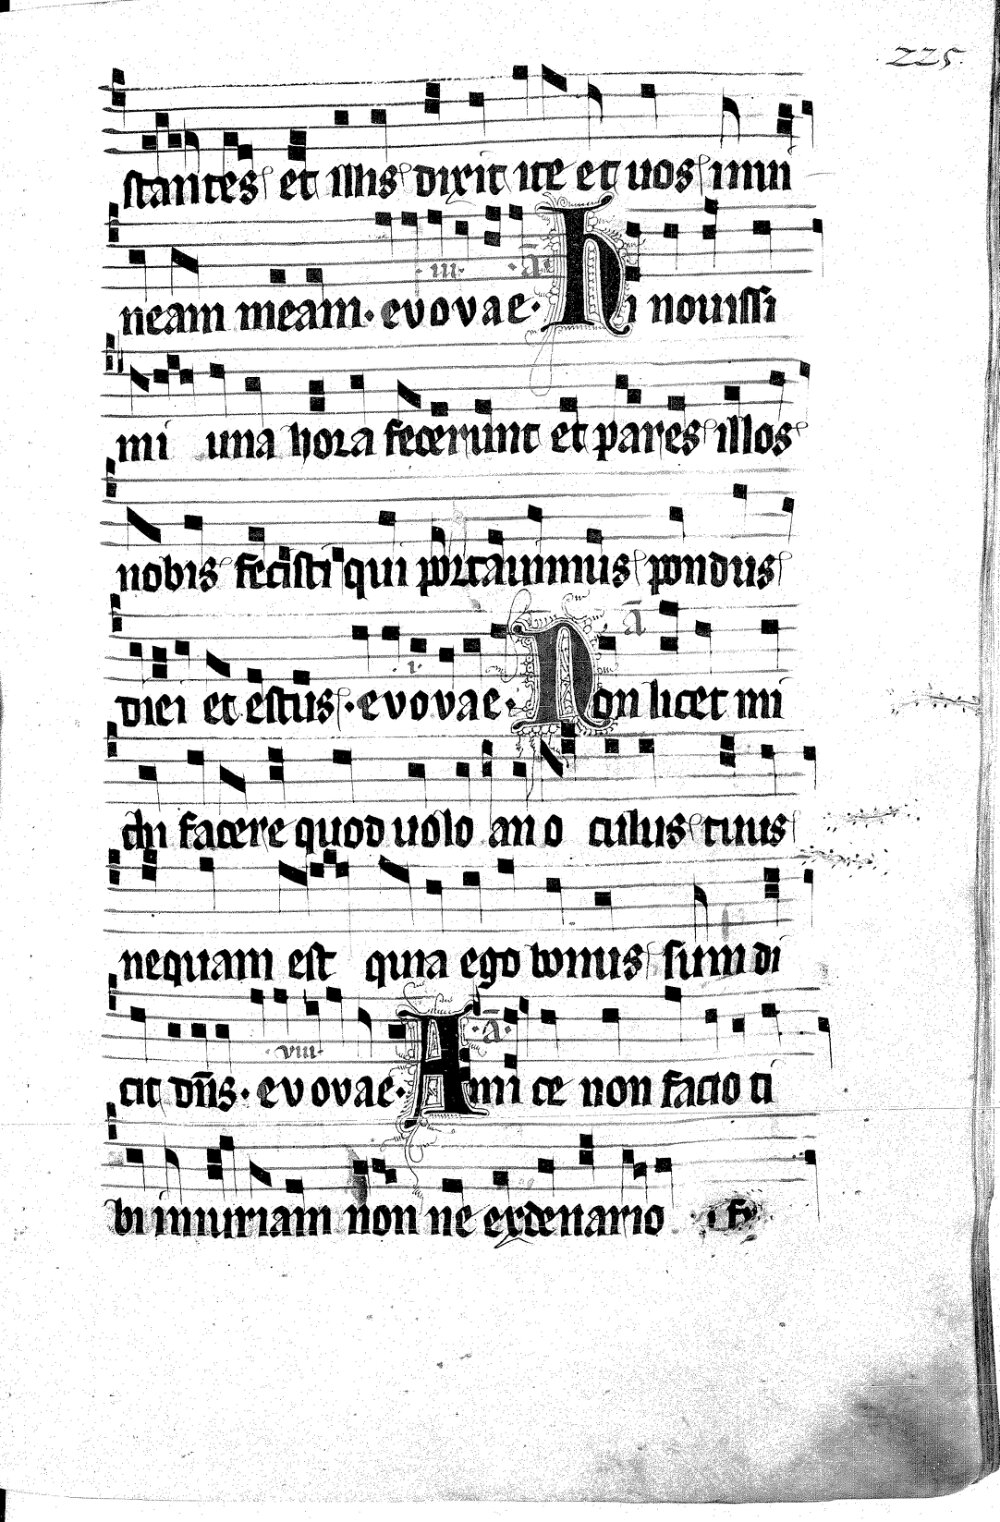 225.
stantes et illis dixit ite et uos in uii
neam meam · evovae · iii · a Hi nouissi
mi una hora fecerunt et pares illos
nobis fecisti qui portauimus pondus
diei et estus · evovae · i · a Non licet mi
chi facere quod uolo an o culus tuus
nequam est quia ego bonus sum di
cit dñs · evovae · viii · a Ami ce non facio ti
bi iniuriam non ne ex denario